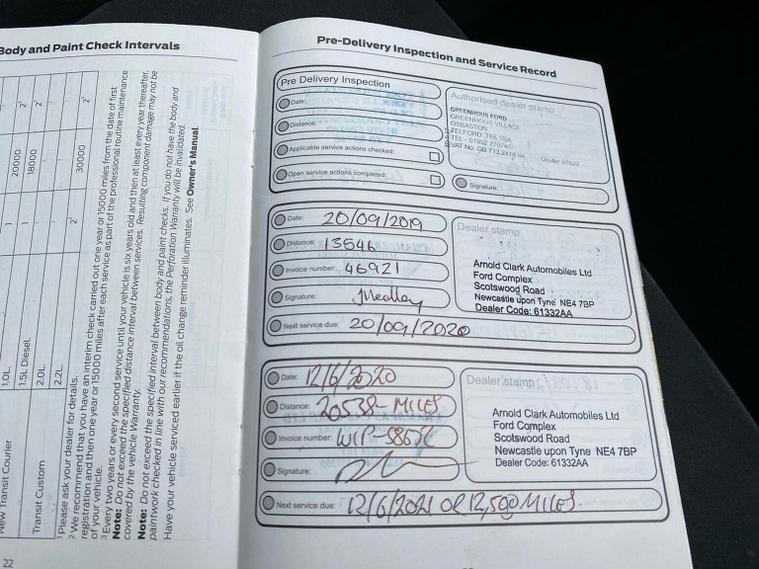 Body and Paint Check Intervals
New Transit Courier
1.0L
1
20000
2¹
1.5L Diesel.
1
18000
2¹
Transit Custom
2.0L
2.2L
2¹
30000
2¹
¹ Please ask your dealer for details.
² We recommend that you have an interim check carried out one year or 15000 miles from the date of first
registration and then one year or 15000 miles after each service as part of the professional routine maintenance
of your vehicle.
³ Every two years or every second service until your vehicle is six years old and then at least every year thereafter.
Note: Do not exceed the specified distance interval between services. Resulting component damage may not be
covered by the vehicle Warranty.
Note: Do not exceed the specified interval between body and paint checks. If you do not have the body and
paintwork checked in line with our recommendations, the Perforation Warranty will be invalidated.
Have your vehicle serviced earlier if the oil change reminder illuminates. See Owner's Manual.
22
Pre-Delivery Inspection and Service Record
Pre Delivery Inspection
Date:
Distance:
Applicable service actions checked:
Open service actions completed:
Authorised dealer stamp
GREENHOUS FORD
GREENHOUS VILLAGE
OSBASTON
TELFORD
Dealer
Signature:
Date: 20/09/2019
Distance: 13546
Invoice number: 46921
Signature: JMedley
Next service due: 20/09/2020
Dealer stamp
Arnold Clark Automobiles Ltd
Ford Complex
Scotswood Road
Newcastle upon Tyne NE4 7BP
Dealer Code: 61332AA
Date: 12/6/2020
Distance: 20538- MILES
Invoice number:
Signature:
Next service due: 12/6/2021 OR 12,500 MILES.
Dealer stamp
Arnold Clark Automobiles Ltd
Ford Complex
Scotswood Road
Newcastle upon Tyne NE4 7BP
Dealer Code: 61332AA